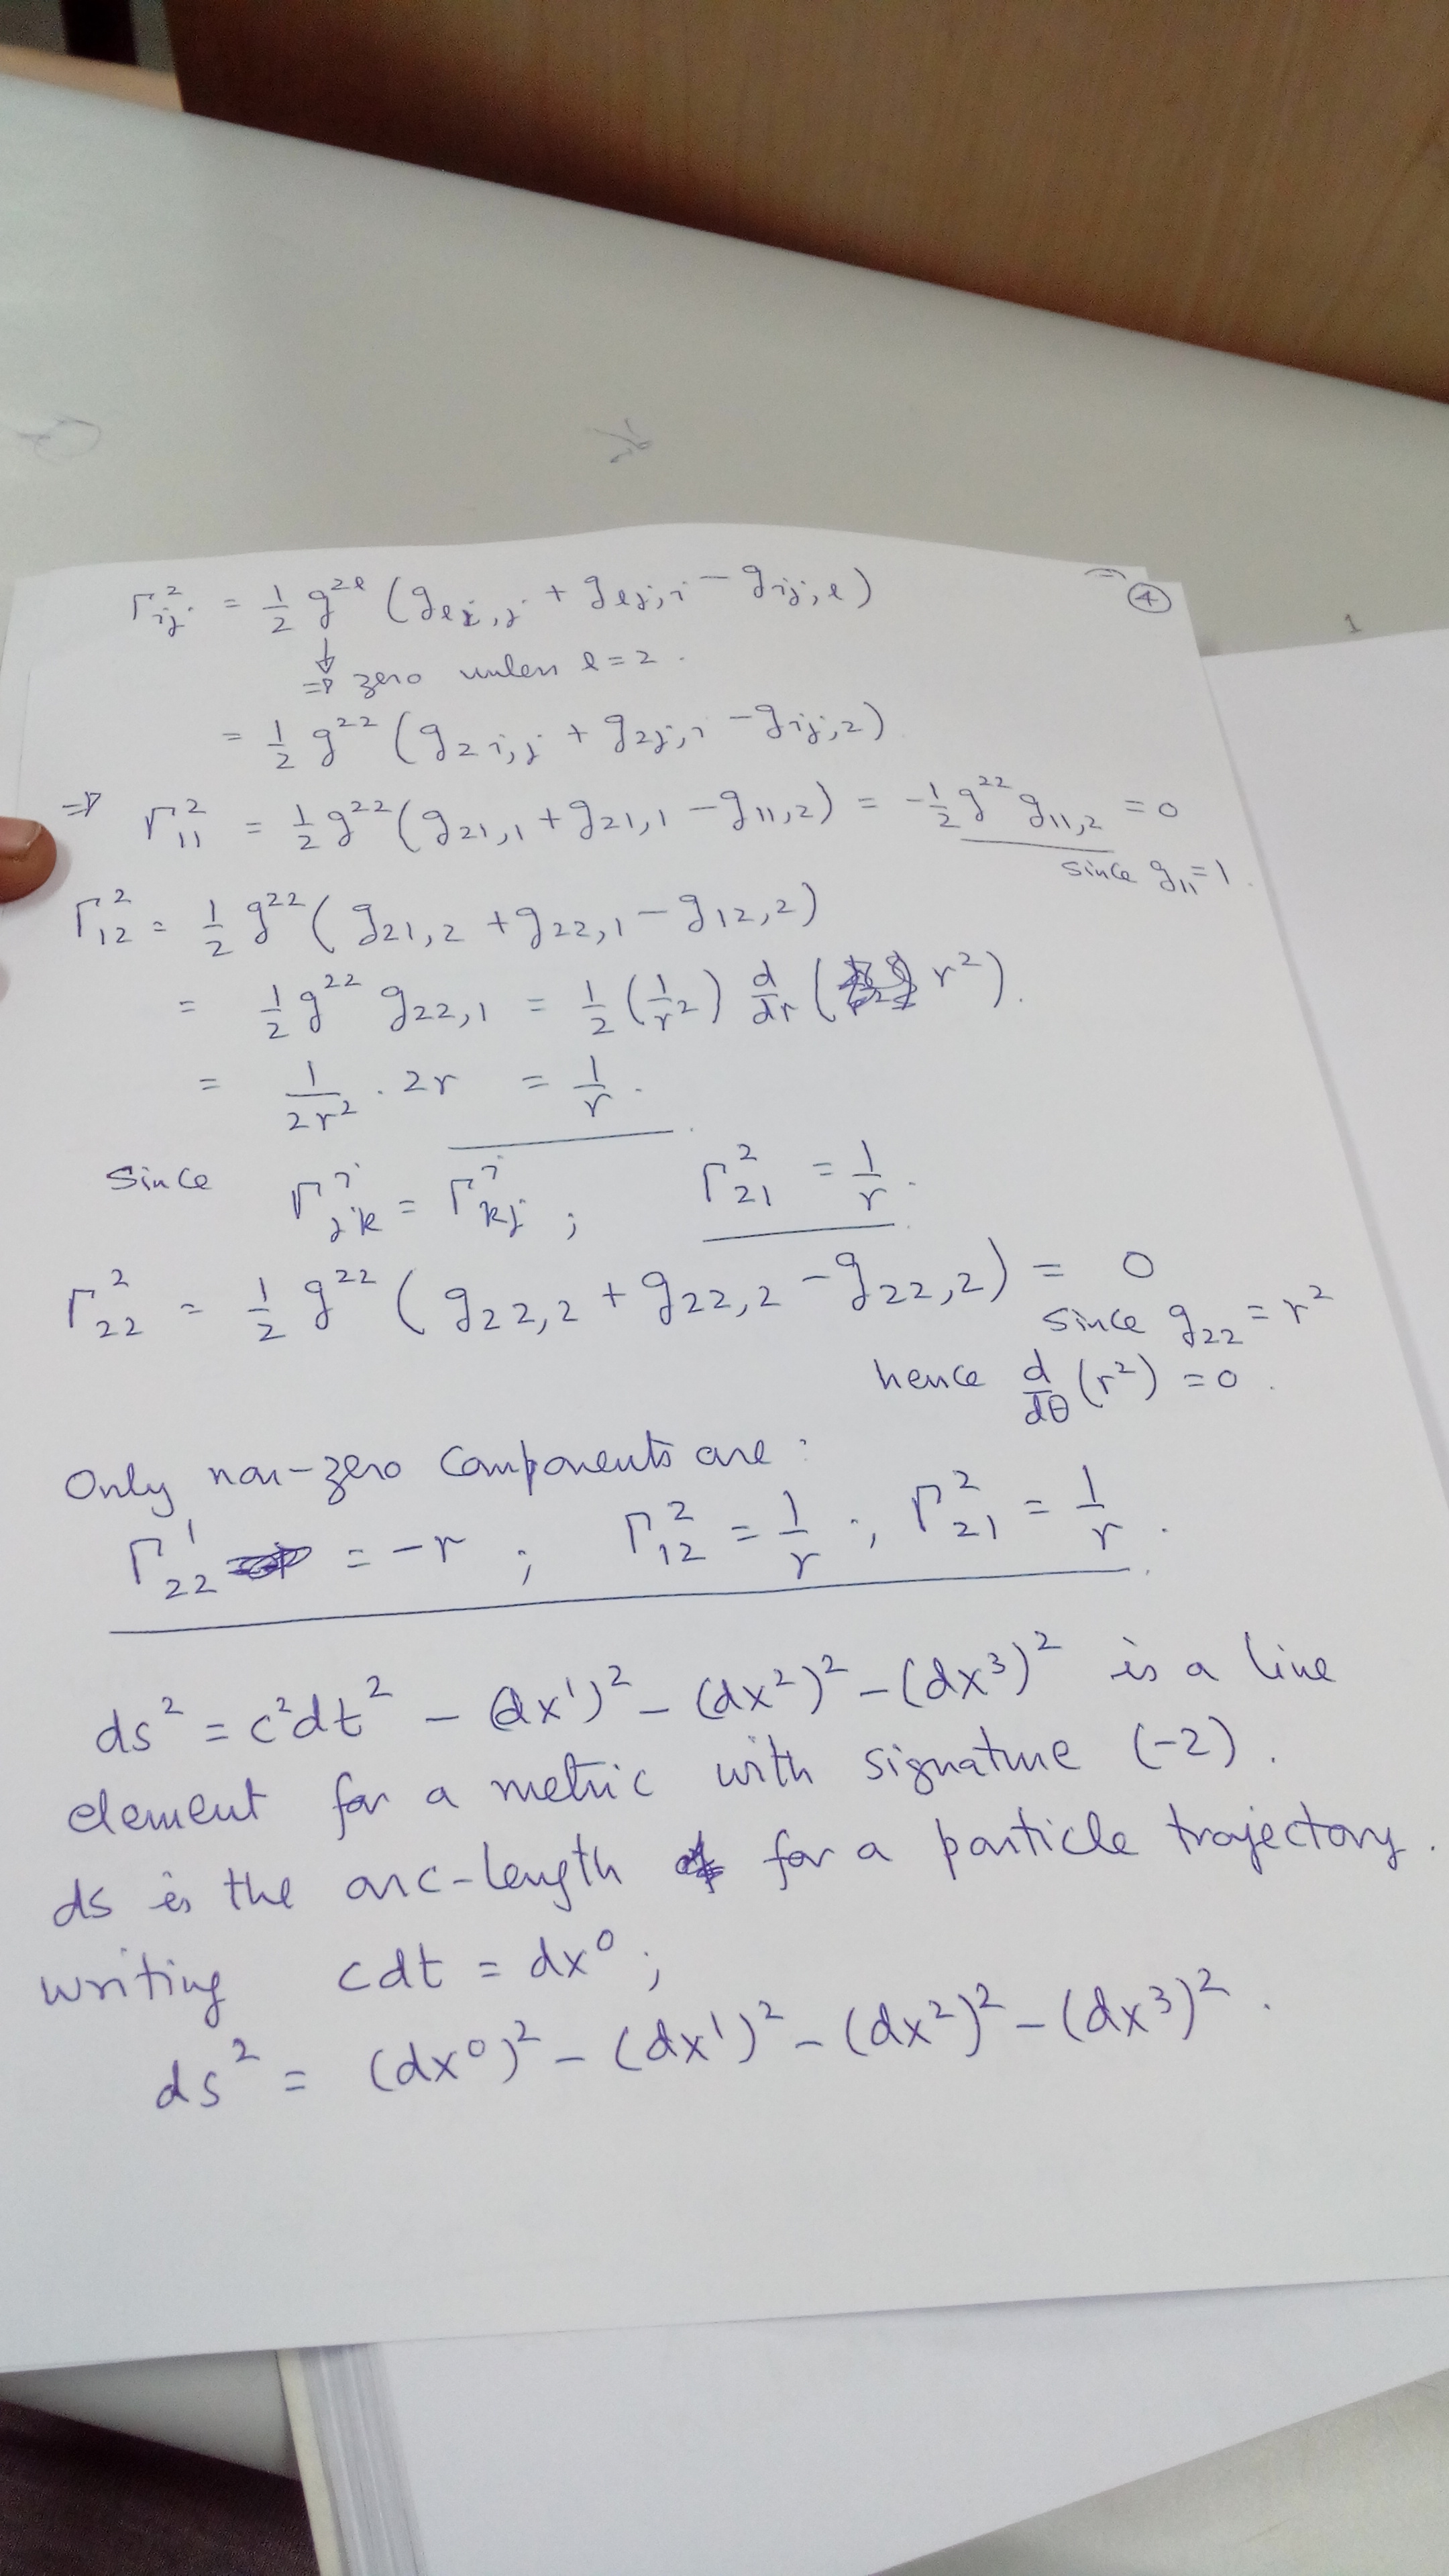 ④
Γ²ᵢⱼ = ½ g²ˡ (gₗᵢ,ⱼ + gₗⱼ,ᵢ − gᵢⱼ,ₗ)
↓
⇒ zero unless l = 2.
= ½ g²² (g₂ᵢ,ⱼ + g₂ⱼ,ᵢ − gᵢⱼ,₂)
⇒ Γ²₁₁ = ½ g²² (g₂₁,₁ + g₂₁,₁ − g₁₁,₂) = −½ g²² g₁₁,₂ = 0
since g₁₁ = 1.
Γ²₁₂ = ½ g²² (g₂₁,₂ + g₂₂,₁ − g₁₂,₂)
= ½ g²² g₂₂,₁ = ½ (1/r²) d/dr (r²).
= 1/2r² · 2r = 1/r.
Since Γⁱⱼₖ = Γⁱₖⱼ ; Γ²₂₁ = 1/r.
Γ²₂₂ = ½ g²² (g₂₂,₂ + g₂₂,₂ − g₂₂,₂) = 0
since g₂₂ = r²
hence d/dθ (r²) = 0.
Only non-zero components are:
Γ¹₂₂ = −r ; Γ²₁₂ = 1/r ; Γ²₂₁ = 1/r.
ds² = c²dt² − (dx¹)² − (dx²)² − (dx³)² is a line
element for a metric with signature (−2).
ds is the arc-length for a particle trajectory.
writing cdt = dx⁰ ;
ds² = (dx⁰)² − (dx¹)² − (dx²)² − (dx³)².
1